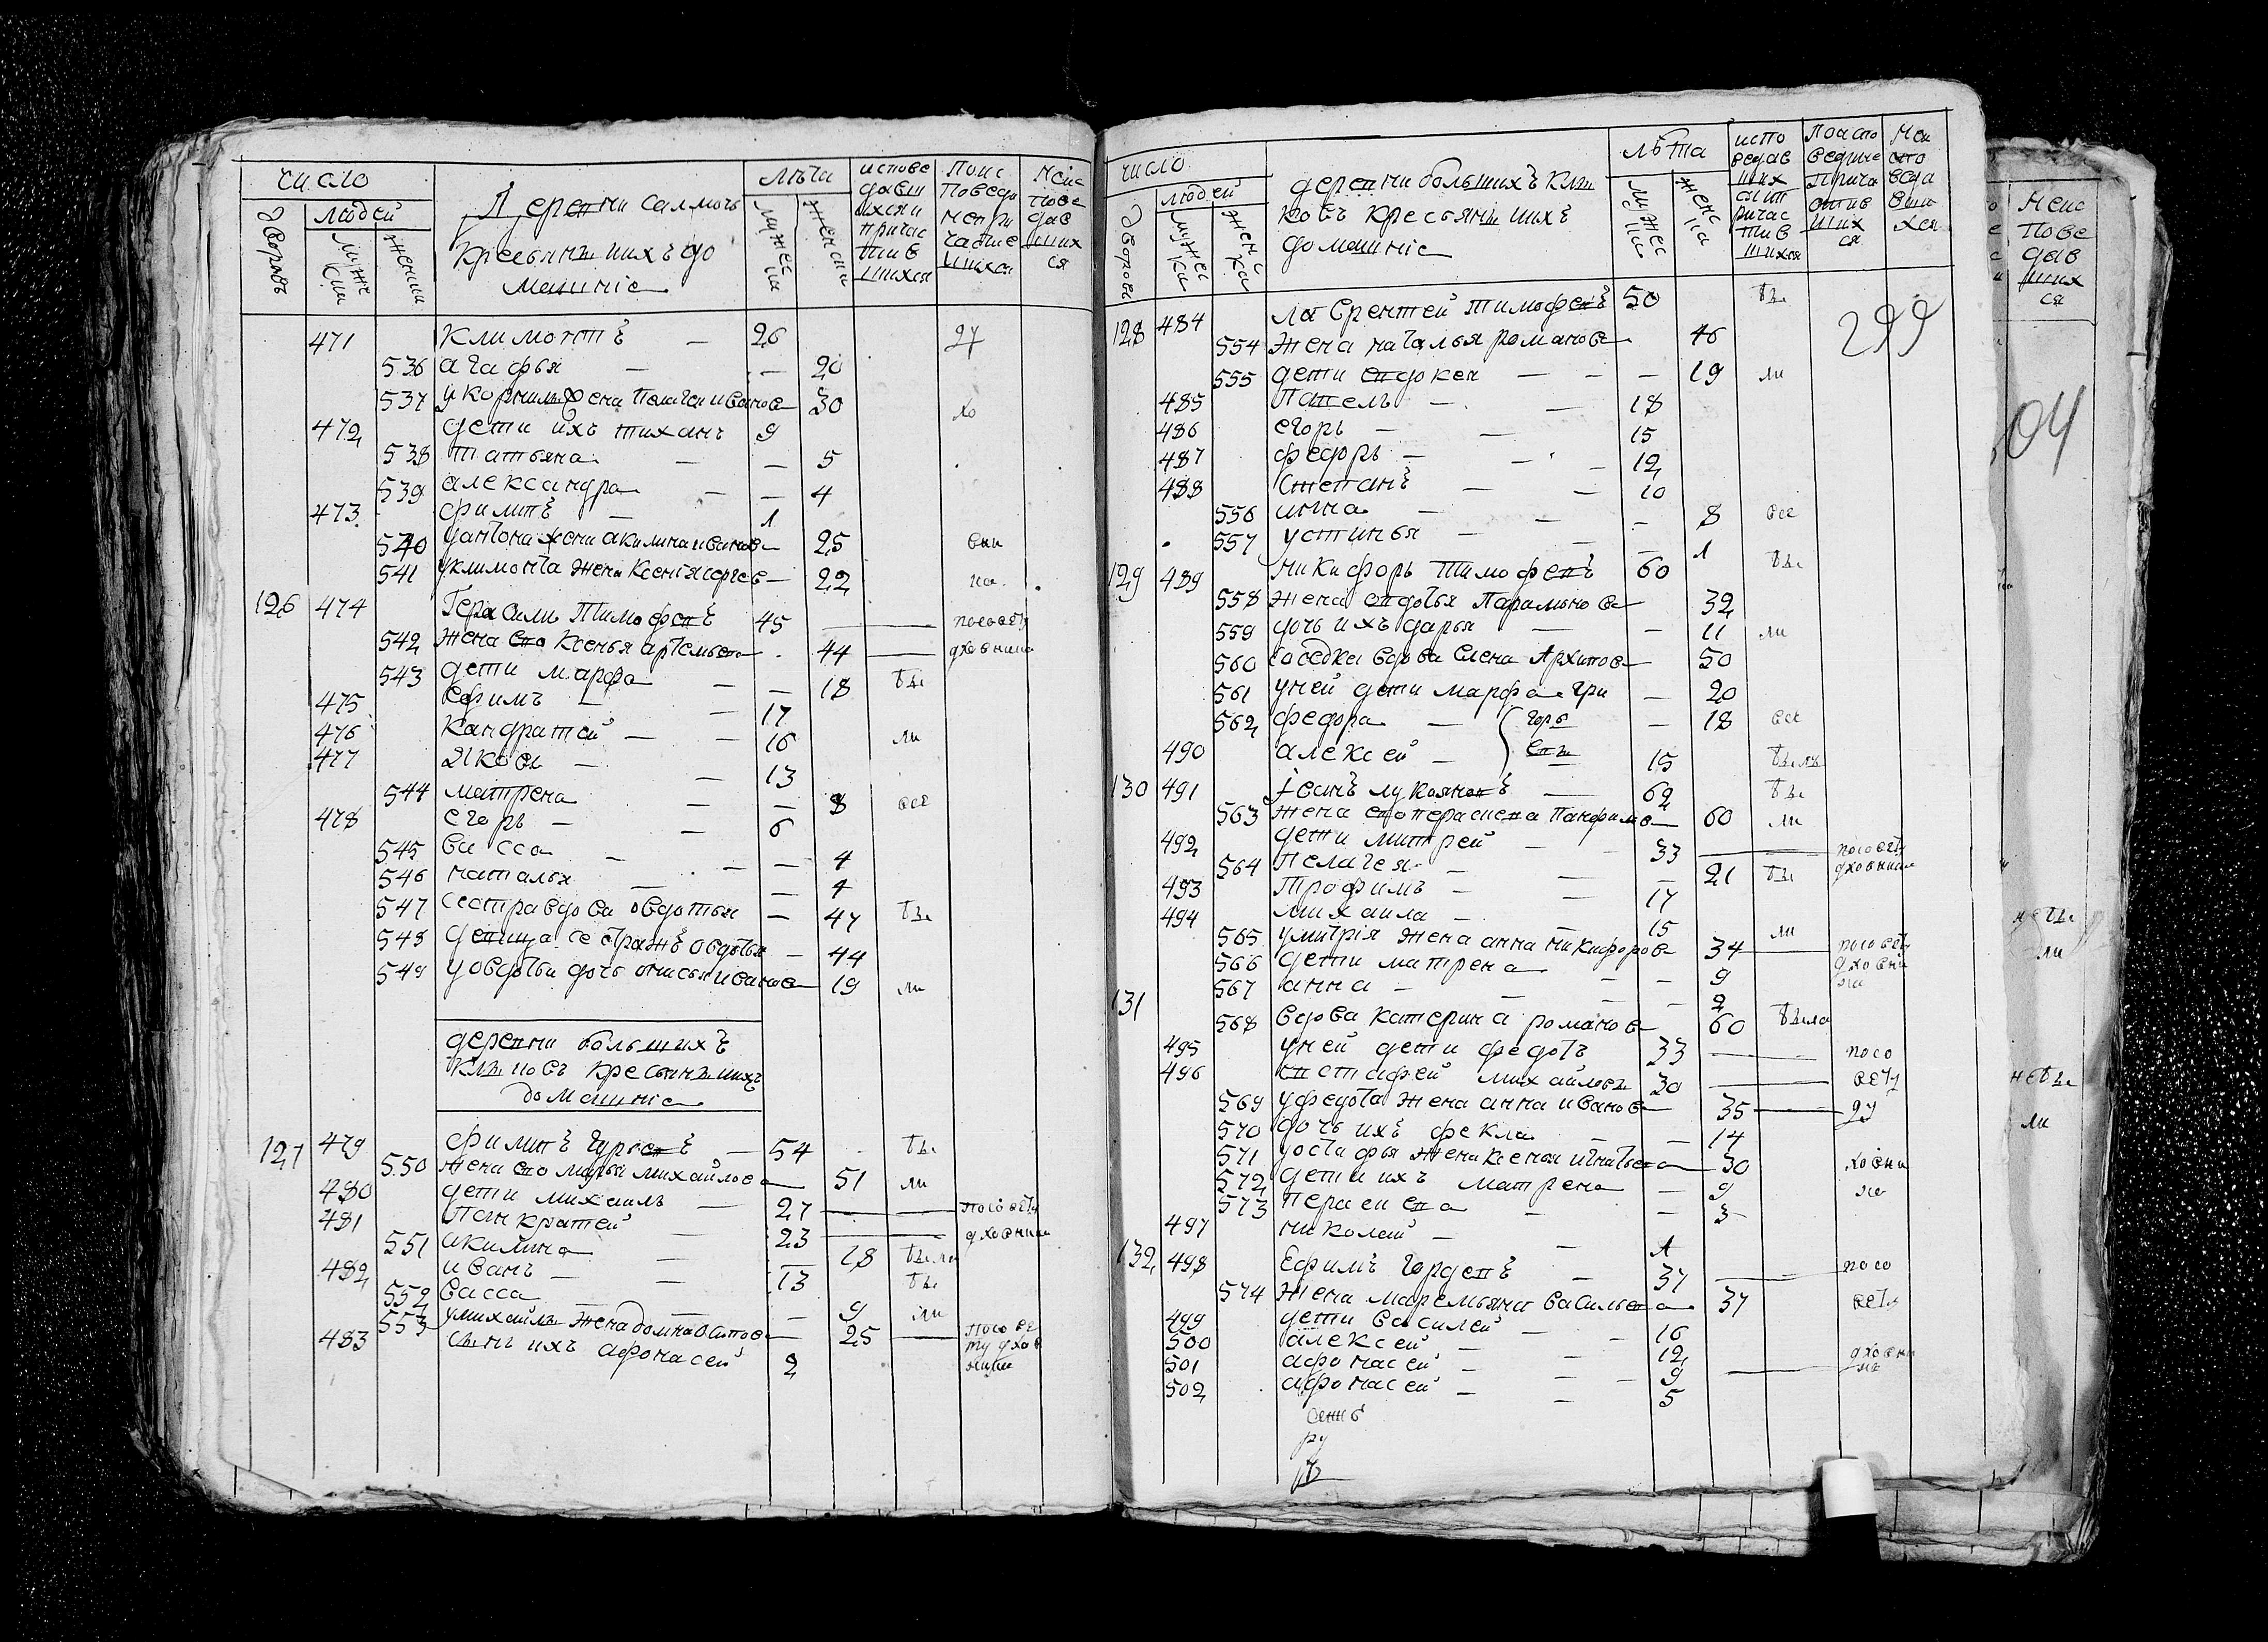 число
людей
дворовъ
мужески
женски
Деревни салмочъ
крестьянъ ихъ до
машніе
лѣта
мужеска
женска
исповедавшихся и причастившихся
поисповеди непричастившихся
неисповедавшихся
471 климонтъ — 26
536 агафья — — 20
537 у корнилы жена пелагеи иванова 30
472 дети ихъ тиханъ 9
538 татьяна — — 5
539 александра — — 4
473 филипъ — 1
540 у антона жена акилина иванова 25
541 у климонта жена ксенія сергеева 22
126 474 Герасимъ Тимофеевъ 45 — посовету
542 жена ево ксенья артемьева 44 — духовника
543 дети марфа — — 18 бы
475 ефимъ — — 17
476 кандратей — — 16 ли
477 яковъ — — 13
544 матрена — — 8 все
478 егоръ — — 6
545 васса — — 4
546 наталья — — 4
547 сестра вдова овдотья — 47 бы
548 девица — 44
549 у овдотьи дочь анисья иванова 19 ли
деревни большихъ
крестьянъ ихъ
домашніе
127 479 филипъ гурьевъ — 54 бы
550 жена ево марья михайлова 51 ли
480 дети михаилъ — 27 — посовету
481 панкратей 23 — духовника
551 акилина — — 18 были
482 иванъ — — 13 бы
552 васса — — 9 ли
553 у михайлы жена домна осипова 25 — посове
483 сынъ ихъ афонасей 2 ту духов
ника
число
людей
дворовъ
мужески
женски
деревни большихъ
ковъ крестьянъ ихъ
домашніе
лѣта
мужеска
женска
299
128 484 лаврентей тимофеевъ 50 бы
554 жена наталья романова 46
555 дети евдокея — — — 19 ли
485 павелъ — — 18
486 егоръ — — 15
487 федоръ — — 12
488 степанъ — — 10
556 анна — — — 8 все
557 устинья — — — 1
129 489 никифоръ тимофеевъ 60 бы
558 жена евдотья парамонова 32
559 дочь ихъ дарья — — 11 ли
560 соседка вдова елена архипова 50
561 у ней дети марфа — гри — 20
562 федора — горь — 18 все
490 алексей — евы — 15 были
130 491 иванъ лукояновъ — 62 бы
563 жена ево парасковья панфилова 60 ли
492 дети митрей — 33 — посовету
564 пелагея — — — 21 бы духовника
493 трофимъ — — 17
494 михаила — — 15 ли
565 у митрія жена анна никифорова 34 — посовету
566 дети матрена — — 9 духовни
567 анна — — — 2 ка
131 568 вдова катерина романова 60 была
495 у ней дети федотъ 33 — посо
496 евстафей михайловы 30 — вету
569 у федота жена анна иванова 35 — ду
570 дочь ихъ фекла — — 14
571 у остафья жена ксенья игнатьева 30 ховни
572 дети ихъ матрена — 9 ка
573 — — 3
497 николай — — 1
132 498 Ефимъ гордеевъ — 37 — посо
574 жена маремьяна васильева 37 вету
499 дети василей — — 16
500 алексей — — 12
501 афонасей — — 9 — духовни
502 афонасей — — 5 ка
ру
неис
пове
дав
ших
ся
04
небы
ли
небы
ли